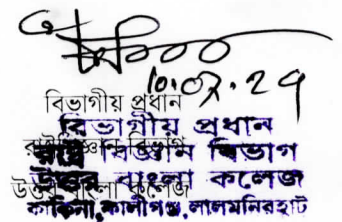 10.07.29
বিভাগীয় প্রধান
বিভাগীয় প্রধান
রাষ্ট্রবিজ্ঞান বিভাগ
রাষ্ট্র বিজ্ঞান বিভাগ
উত্তর বাংলা কলেজ
উত্তর বাংলা কলেজ
কাকিনা,কালীগঞ্জ,লালমনিরহাট